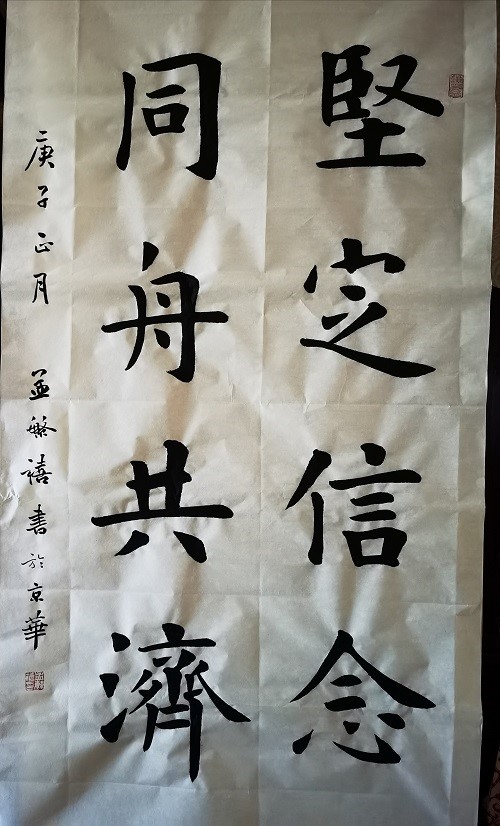 堅定信念
同舟共濟
庚子正月 孟繁禧書於京華